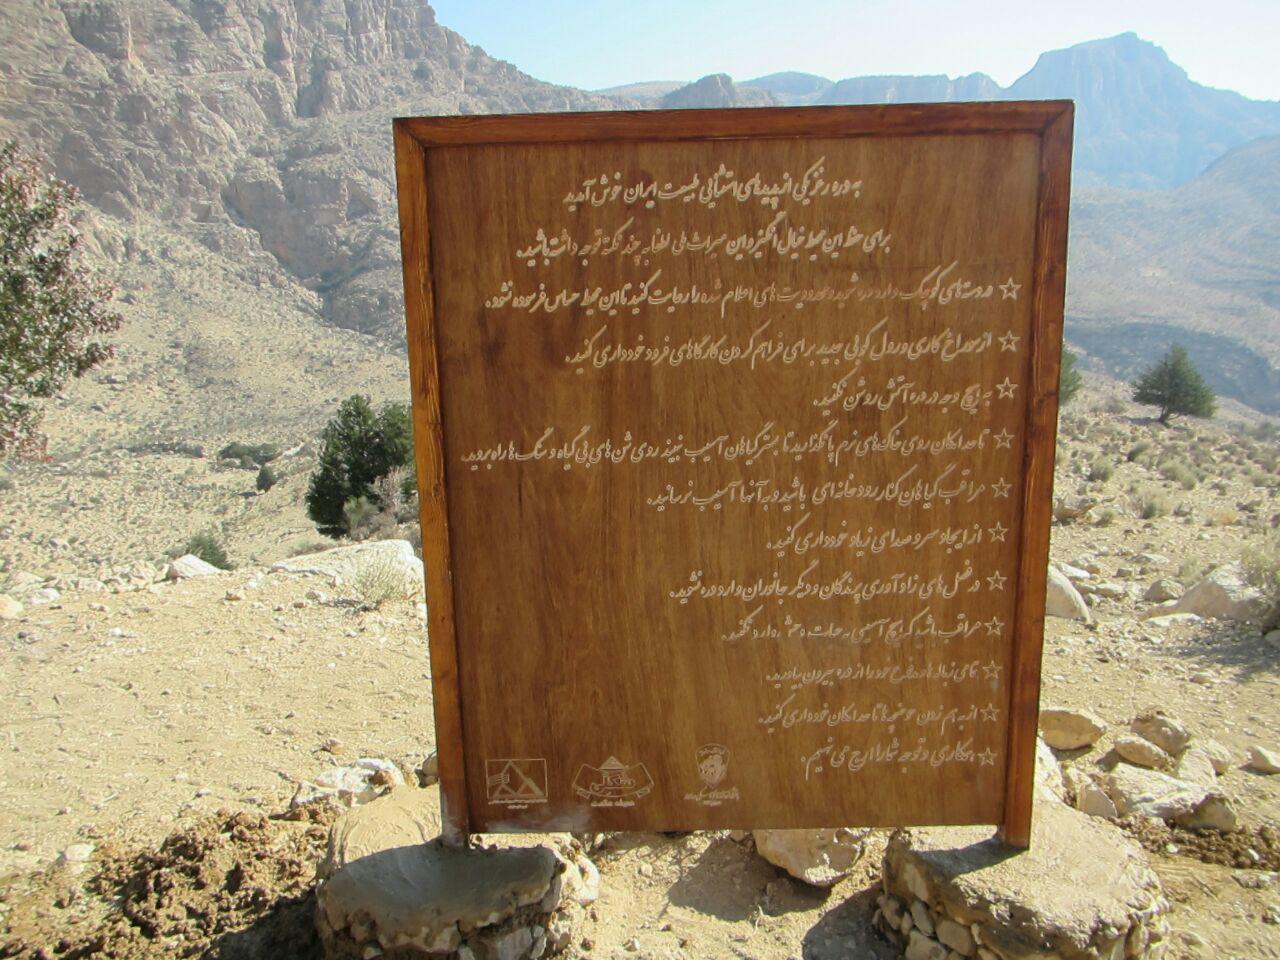 به دره رغز یکی از پدیده‌های استثنایی طبیعت ایران خوش آمدید
برای حفظ این محیط خیال انگیز و این میراث ملی لطفا به چند نکته توجه داشته باشید.
☆ در دسته‌های کوچک وارد دره شوید و محدودیت های اعلام شده را رعایت کنید تا این محیط حساس فرسوده نشود.
☆ از سوراخ کاری و رول کوبی جدید برای فراهم کردن کارگاه‌های فرود خودداری کنید.
☆ به هیچ وجه در دره آتش روشن نکنید.
☆ تا حد امکان روی خاک‌های نرم پا نگذارید تا بستر گیاهان آسیب نبیند روی شن های بی گیاه و سنگ ها راه بروید.
☆ مراقب گیاهان کنار رودخانه‌ای باشید و به آنها آسیب نرسانید.
☆ از ایجاد سر و صدای زیاد خودداری کنید.
☆ در فصل های زادآوری پرندگان و دیگر جانوران وارد دره نشوید.
☆ مراقب باشید که هیچ آسیبی به حیات وحش وارد نکنید.
☆ تمامی زباله‌ها و مدفوع خود را از دره بیرون بیاورید.
☆ از به هم زدن حوضچه‌ها تا حد امکان خودداری کنید.
☆ همکاری و توجه شما را ارج می نهیم.